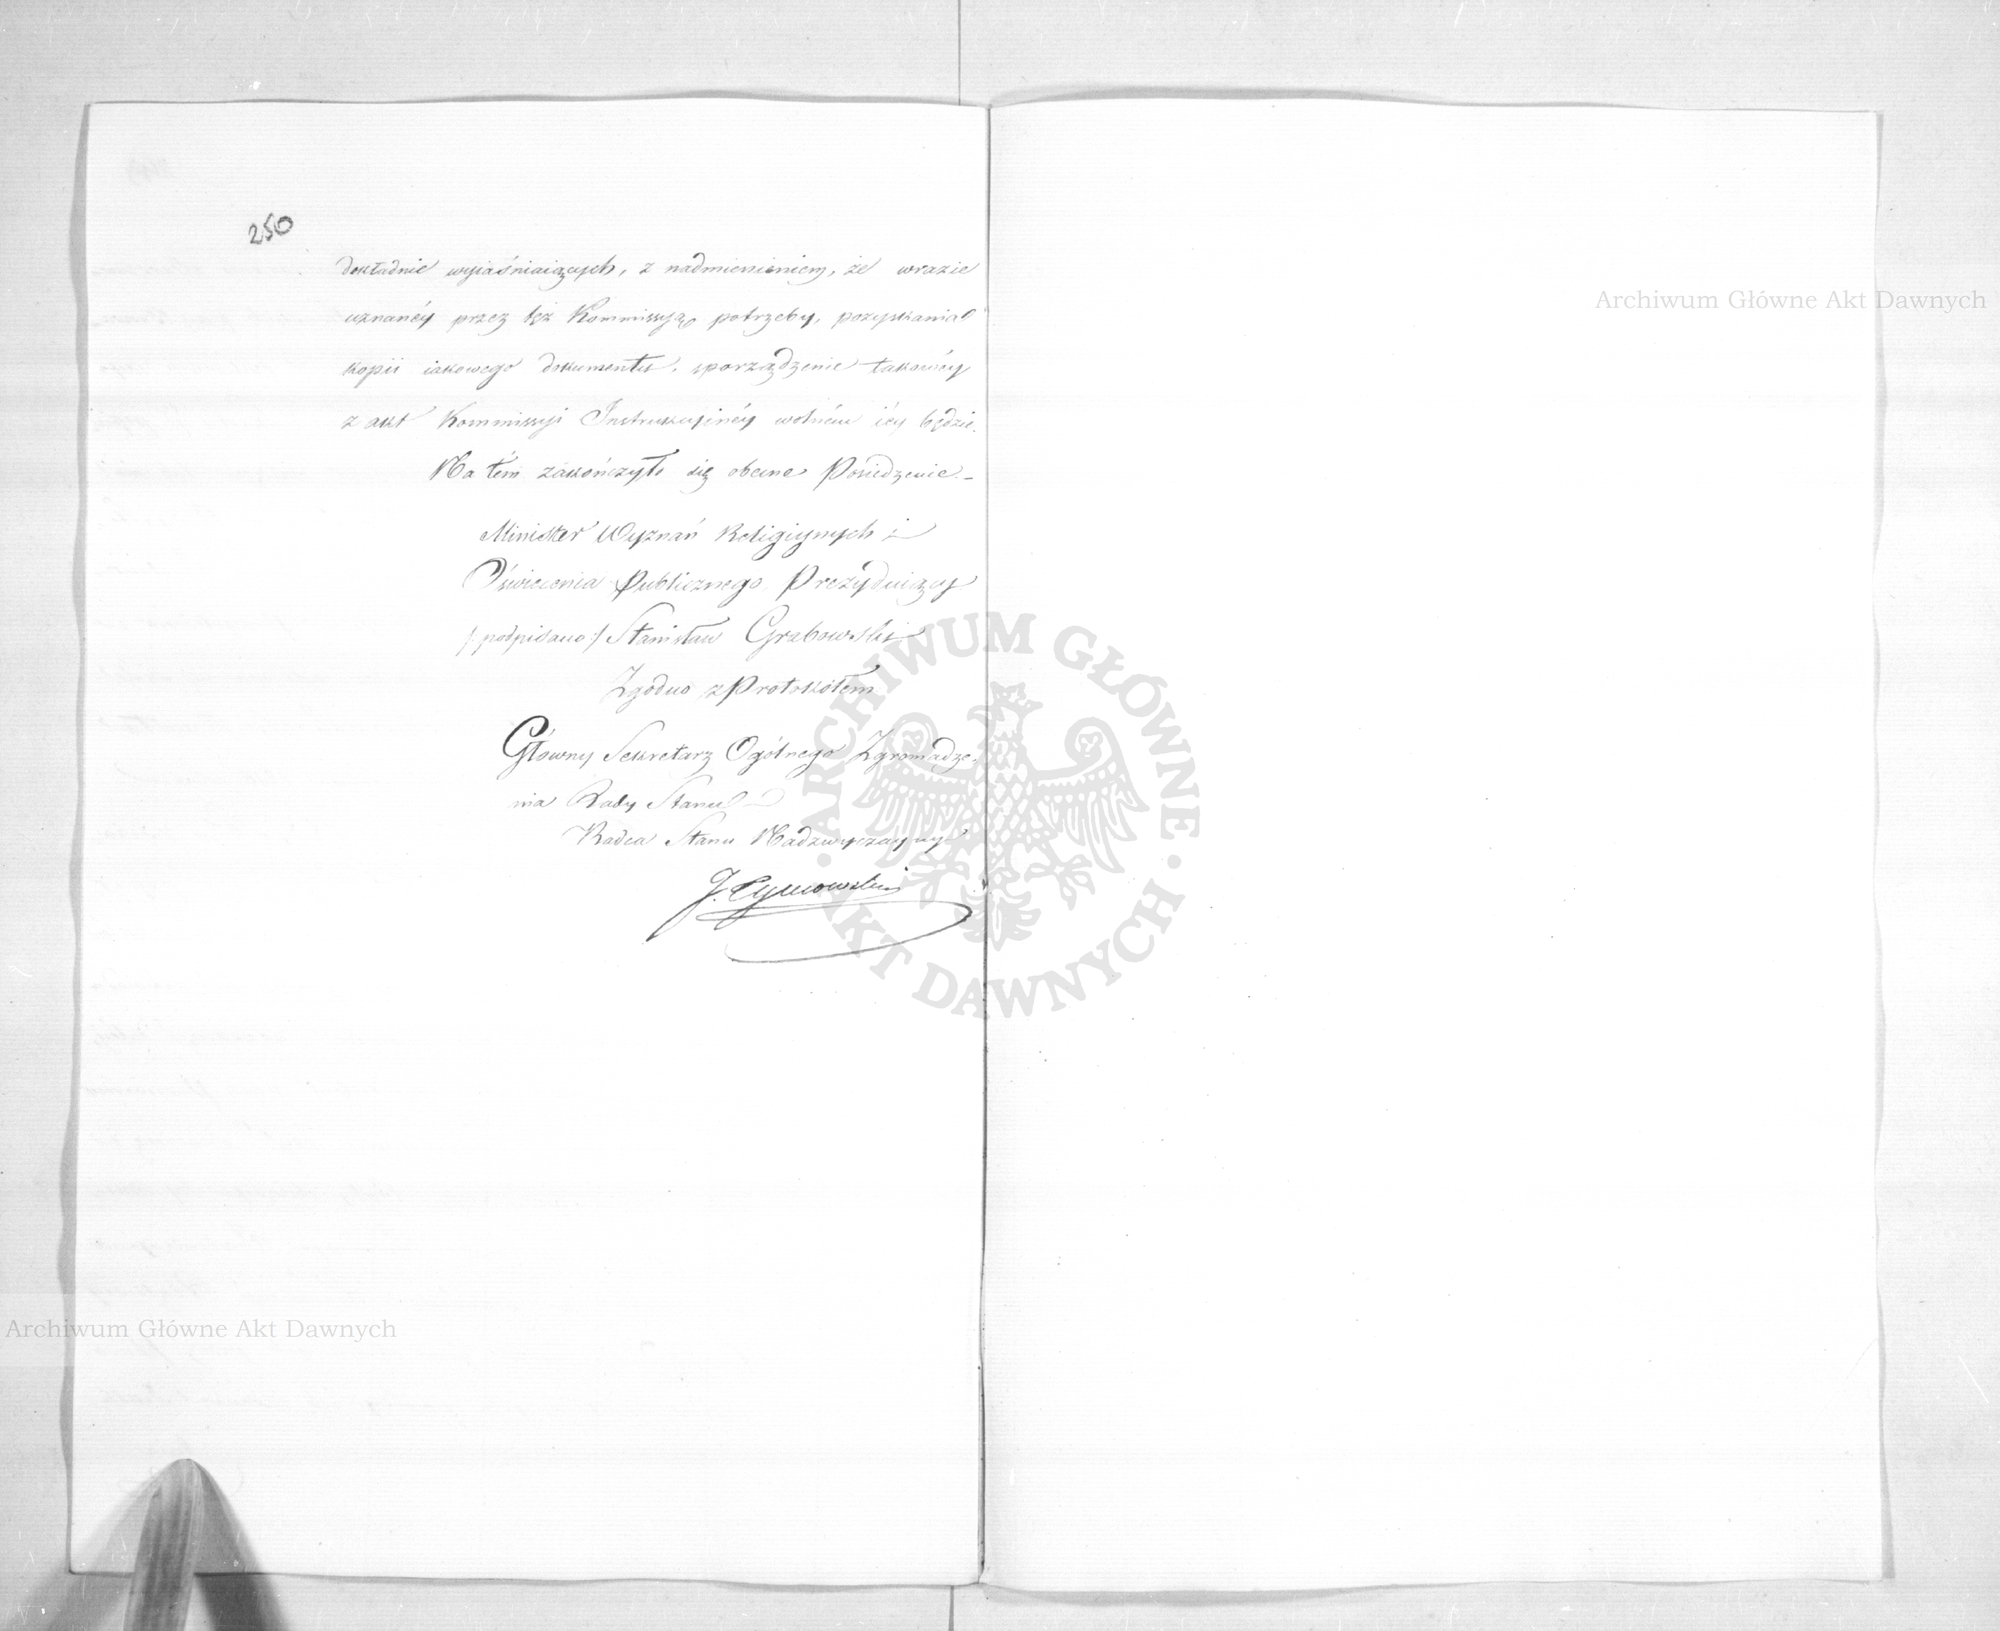 250
dokładnie wyiaśniaiących, z nadmienieniem, że wrazie
uznanéy przez tęż Kommissyą potrzeby, pozyskania
kopii iakowego dokumentu, sporządzenie takowéy
z akt Kommissyi Instrukcyinéy wolném iéy będzie.
Na tém zakończyło się obecne Posiedzenie.–
Minister Wyznań Religiynych i
Oświecenia Publicznego Prezyduiący
/:podpisano:/ Stanisław Grabowski
Zgodno z Protokółem
Główny Sekretarz Ogólnego Zgromadze-
nia Rady Stanu
Radca Stanu Nadzwyczayny
J. Tymowski
Archiwum Główne Akt Dawnych
ARCHIWUM GŁÓWNE AKT DAWNYCH
Archiwum Główne Akt Dawnych